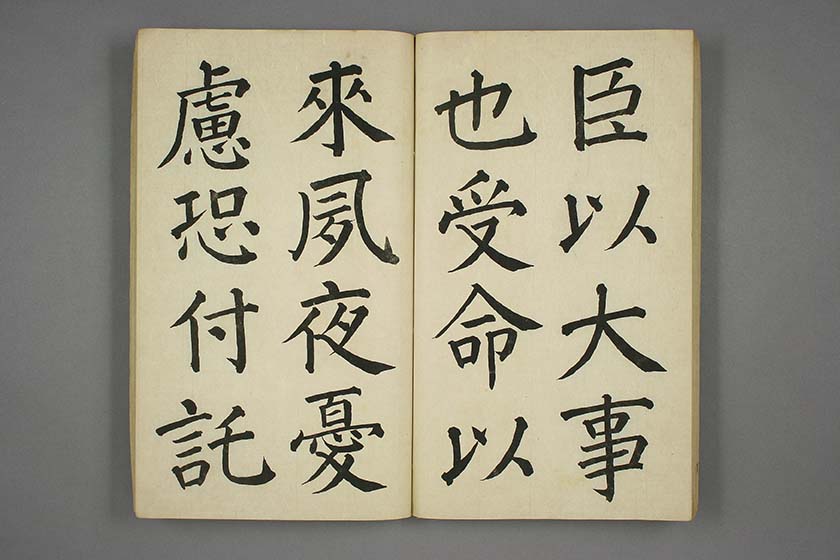 臣以大事
也受命以
來夙夜憂
慮恐付託